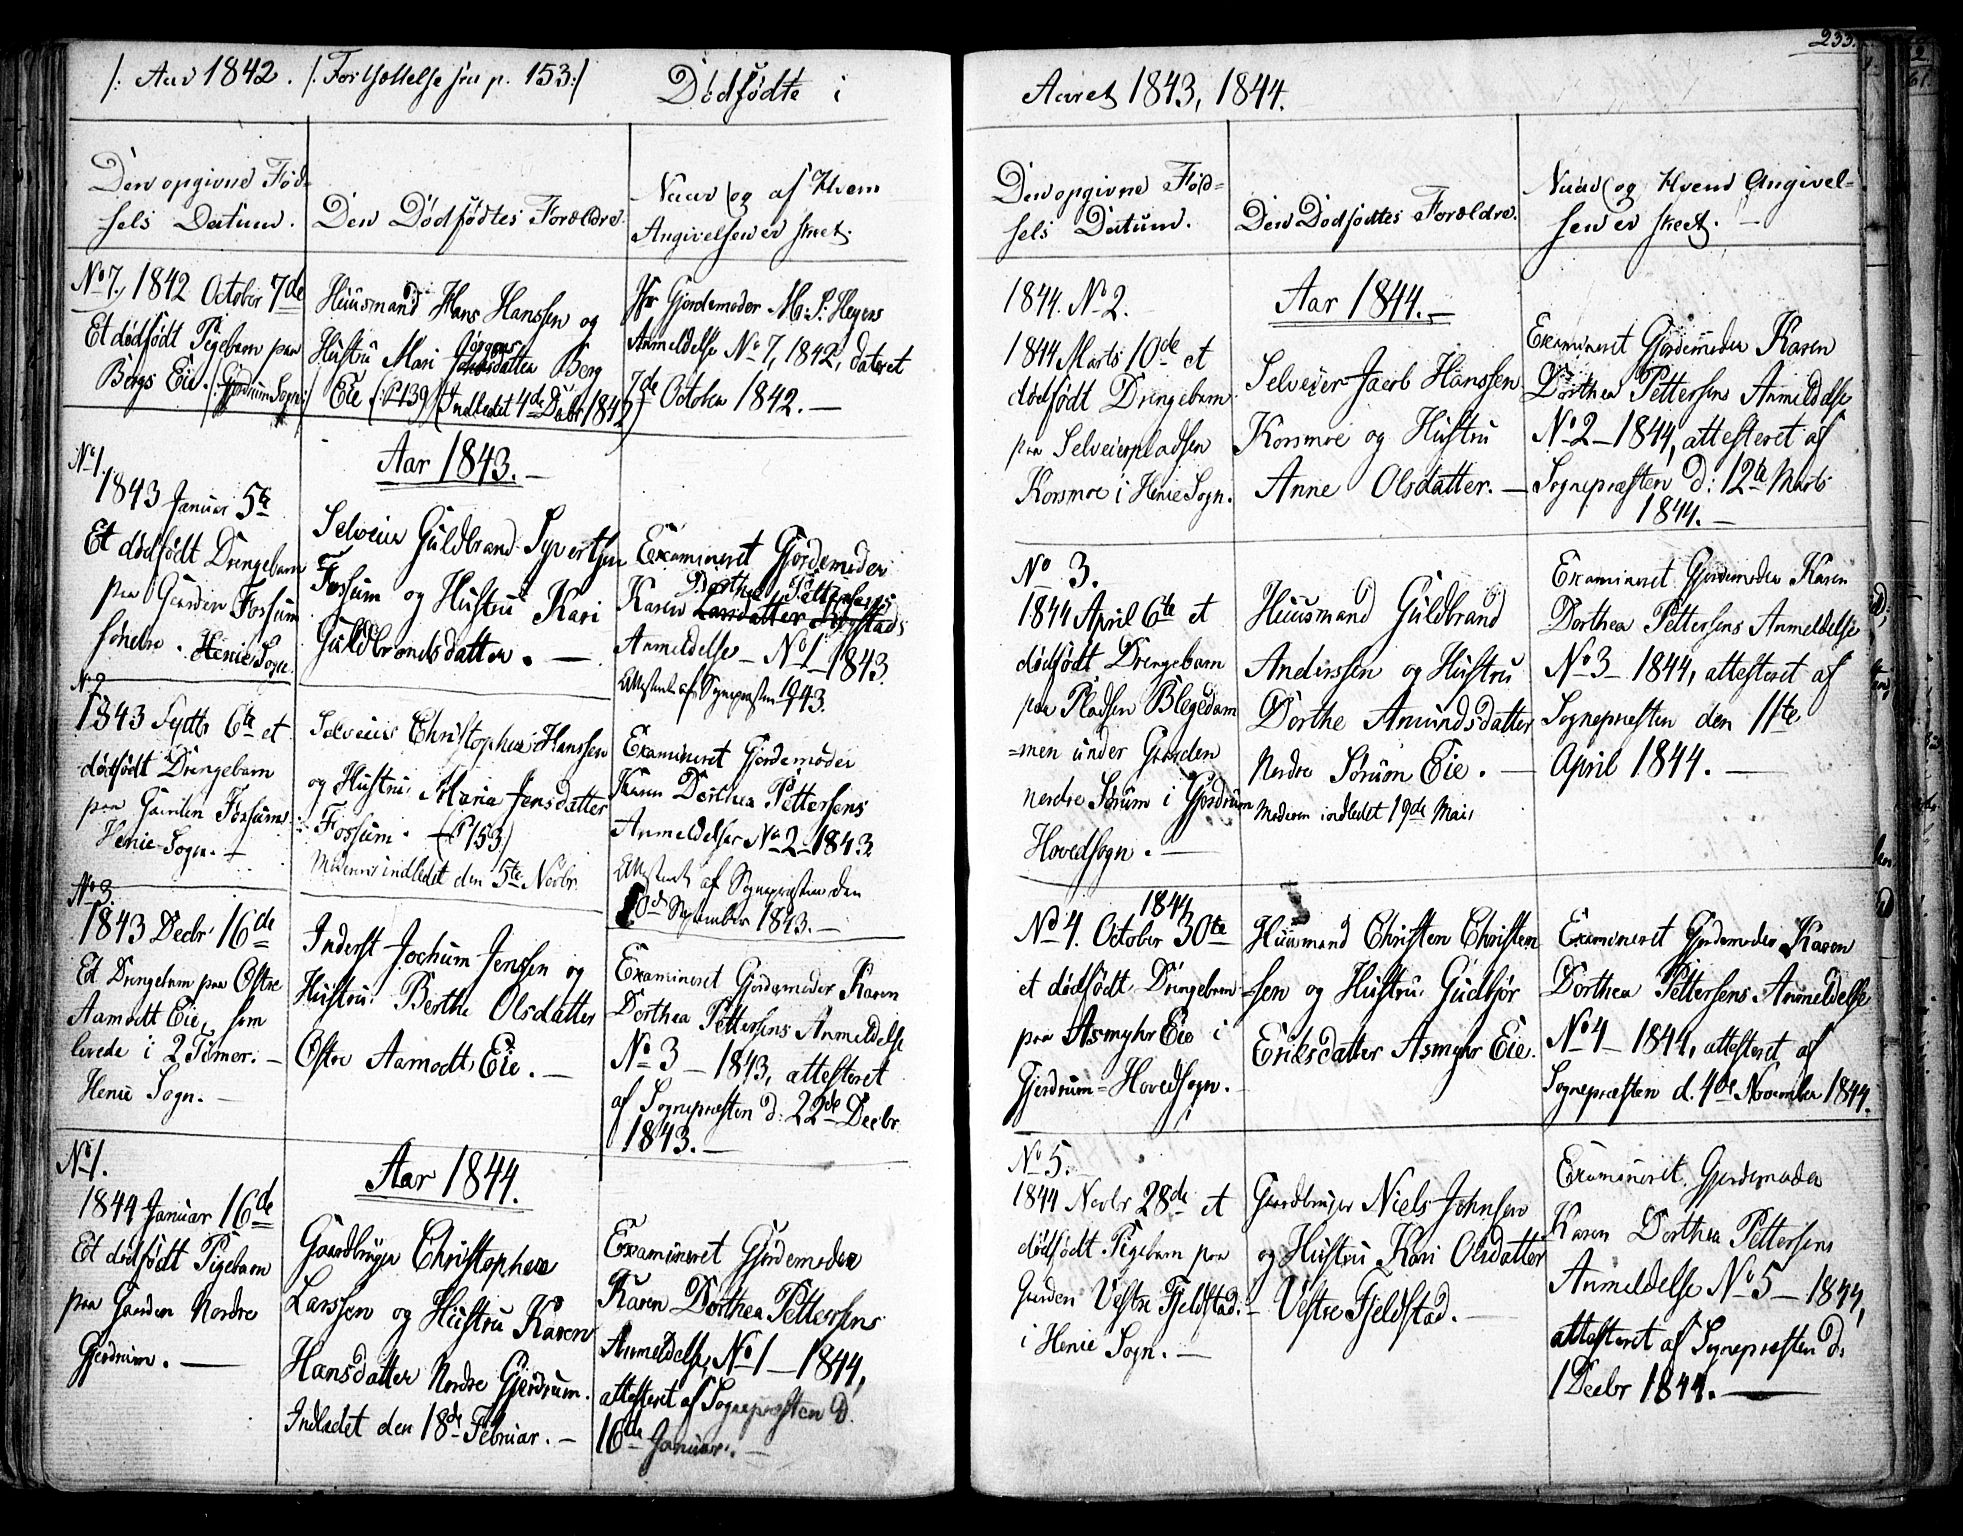 /: Aar 1842. /: Fortsættelse fra p. 153:/ Dödfödte i
Den opgivne Föd-
sels Datum.
Den Dödfödtes Forældre.
Naar og af Hvem
Angivelsen er skeet.
No 7, 1842 October 7de
Et dödfödt Pigebarn paa
Bergs Eie. (: Gjerdrum Sogn :)
Huusmand Hans Hanssen og
Jörgens
Hustru Mari datter Berg
Eie (: P 139) (Indledet 4de Decbr 1842)
Gjordemoder M. S. Heyens
Anmeldelse No 7, 1842, dateret
7de October 1842. —
Aar 1843. —
No 1.
1843 Januar 5te
Et dödfödt Drengebarn
paa Gaarden Fossum
söndre. Henie Sogn.
Selveier Guldbrand Syvertsen
Fossum og Hustru Kari
Guldbrandsdatter. —
Examineret Gjordemoder
Dorthea Pettersens
Karen Larsdatter
Anmeldelse — No 1 — 1843.
Attesteret af Sognepræsten 1943.
No 2
1843 Septb 6te et
dödfödt Drengebarn
paa Gaarden Fossum
Henie Sogn. —
Selveier Christopher Hanssen
og Hustru Maria Jensdatter
Fossum. — (P 153)
Moderen indledet den 5te Novbr.
Examineret Gjordemoder
Karen Dorthea Pettersens
Anmeldelse No 2 — 1843.
Attesteret af Sognepræsten den
10de September 1843. —
No 3.
1843 Decbr 16de
Et Drengebarn paa Östre
Aamodt Eie, som
levede i 2 Timer. —
Henie Sogn. —
Inderst Jochum Jenssen og
Hustru Berthe Olsdatter
Östre Aamodt Eie. —
Examineret Gjordemoder Karen
Dorthea Pettersens Anmeldelse
No 3 — 1843, attesteret
af Sognepræsten d: 22de Decbr
1843. —
Aar 1844.
No 1.
1844 Januar 16de
Et dödfödt Pigebarn
paa Gaarden Nordre
Gjerdrum. —
Gaardbruger Christopher
Larssen og Hustru Karen
Hansdatter Nordre Gjerdrum.
Indledet den 18de Februar. —
Examineret Gjordemoder
Karen Dorthea Pettersens
Anmeldelse No 1 — 1844,
attesteret af Sognepræsten d.
16de Januar. —
233.
Aaret 1843, 1844.
Den opgivne Föd-
sels Datum.
Den Dödfödtes Forældre.
Naar og Hvem Angivel-
sen er skeet. —
1844. No 2.
1844 Marts 10de et
dödfödt Drengebarn
paa Selveierpladsen
Korsmoe i Henie Sogn.
Aar 1844. —
Selveier Jacob Hanssen
Korsmoe og Hustru
Anne Olsdatter. —
Examineret Gjordemoder Karen
Dorthea Pettersens Anmeldelse
No 2 — 1844, attesteret af
Sognepræsten d: 12te Marts
1844. —
No 3.
1844 April 6te et
dödfödt Drengebarn
paa Pladsen Blegedam
=men under Gaarden
nordre Sörum i Gjerdrum
Hovedsogn. —
Huusmand Guldbrand
Anderssen og Hustru
Dorthe Amundsdatter
Nordre Sörum Eie. —
Moderen indledet 19de Mai.
Examineret Gjordemoder Karen
Dorthea Pettersens Anmeldelse
No 3 — 1844, attesteret af
Sognepræsten den 11te
April 1844. —
1844
No 4. October 30te
et dödfödt Drengebarn
paa Asmyhr Eie i
Gjerdrum = Hovedsogn.
Huusmand Christen Christen
=sen og Hustru Gudbjör
Eriksdatter Asmyhr Eie.
Examineret Gjordemoder Karen
Dorthea Pettersens Anmeldelse
No 4 — 1844, attesteret af
Sognepræsten d. 4de November 1844.
No 5.
1844 Novbr 28de et
dödfödt Pigebarn paa
Gaarden Vestre Fjeldstad.
i Henie Sogn. —
Gaardbruger Niels Johnsen
og Hustru Kari Olsdatter
Vestre Fjeldstad. —
Examineret Gjordemoder
Karen Dorthea Pettersens
Anmeldelse No 5 — 1844,
attesteret af Sognepræsten d:
1 Decbr 1844. —